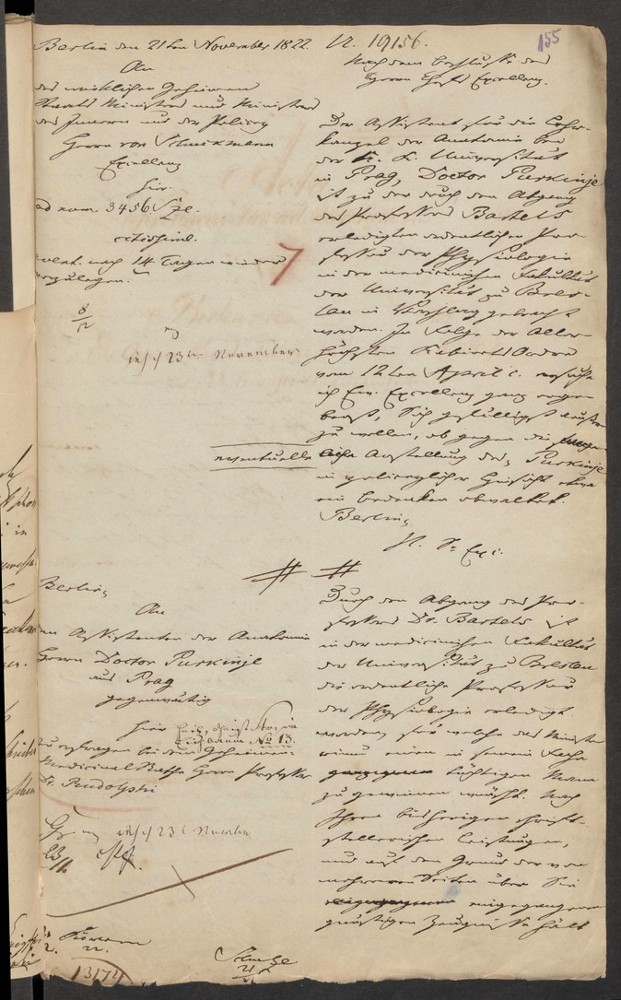 155
Berlin den 21ten November 1822. N. 19156.
An
den wirklichen Geheimen
Staats Minister und Minister
des Innern und der Policey
Herrn von Schuckmann
Excellenz
hier.
ad num 3456
citissime.
nach 14 Tagen wieder
vorzulegen.
8/12
23ten November
Nach dem Beschlusse des
Herrn Chefs Excellenz.
Der Assistent für die Lehr-
kanzel der Anatomie bei
der K. K. Universität
in Prag, Doctor Purkinje
ist zu der durch den Abgang
des Professors Bartels
erledigten ordentlichen Pro-
fessur der Physiologie
in der medicinischen Fakultät
der Universität zu Bres-
lau in Vorschlag gebracht
worden. In Folge der Aller-
höchsten Kabinets Ordre
vom 12ten April c. ersuche
ich Ew. Excellenz ganz erge-
benst, Sich gefälligst äußern
zu wollen, ob gegen die
eventuelle Anstellung des Purkinje
in polizeylicher Hinsicht etwa
ein Bedenken obwaltet.
Berlin,
Berlin,
An
den Assistenten der Anatomie
Herrn Doctor Purkinje
aus Prag
gegenwärtig
hier
No 13
zu erfragen bei dem Geheimen
Medicinal Rathe Herrn Professor
Dr. Rudolphi
23 November
23/11
13174
Durch den Abgang des Pro-
fessors Dr. Bartels ist
in der medicinischen Fakultät
der Universität zu Breslau
die ordentliche Professur
der Physiologie erledigt
worden, für welche das Minister
einen seinem Fache
tüchtigen Mann
zu gewinnen wünscht. Nach
Ihren bisherigen schrift-
stellerischen Leistungen,
und auf den Grund der von
mehreren Seiten über Sie
eingegangenen
günstigen Zeugnisse hält